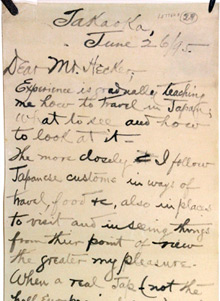 (28)
Takaoka,
June 26/95-
Dear Mr. Hecker;
Experience is gradually teaching
me how to travel in Japan;
what to see and how
to look at it—
The more closely I follow
Japanese customs in ways of
travel, food &c, also in places
to visit and in seeing things
from their point of view
the greater my pleasure.
When a real Jap (not the